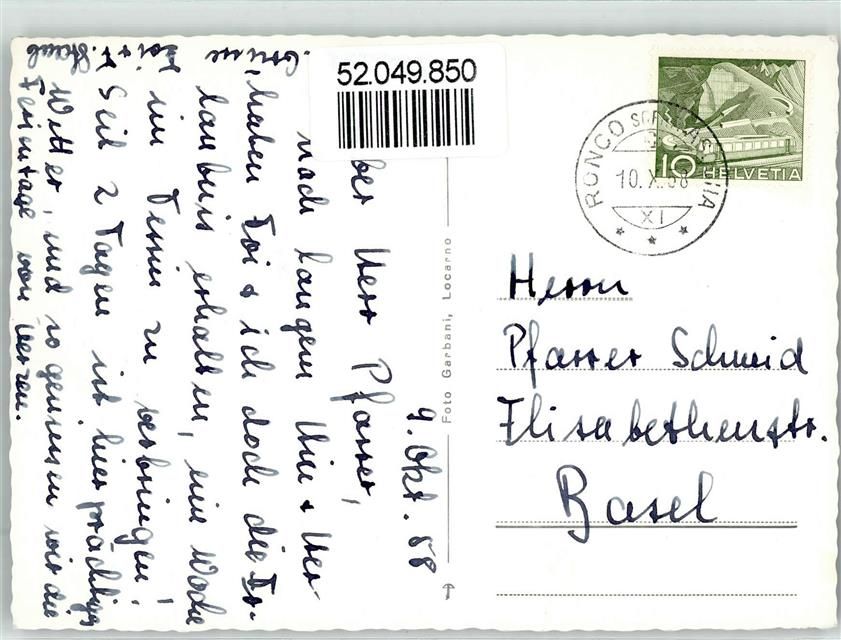 52.049.850
RONCO SOPRA ASCONA
10.X.58
XI
10 HELVETIA
Herrn
Pfarrer Schmid
Elisabethenstr.
Basel
Foto Garbani, Locarno
9. Okt. 58
ber Herr Pfarrer,
nach langem Hin & Her-
haben & ich doch die Er-
laubnis erhalten, eine Woche
im Tessin zu verbringen!
Seit 2 Tagen ist hier prächtiges
Wetter, und so geniessen wir die
Ferientage von Herzen.